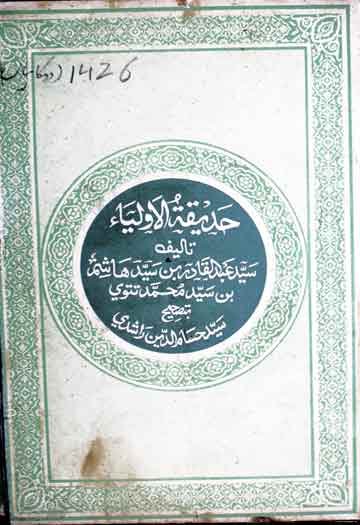 1426
حديقة الاولياء
تاليف
سيد عبدالقادر بن سيد هاشم
بن سيد محمد تتوي
تصحيح
سيد حسام الدين راشدي